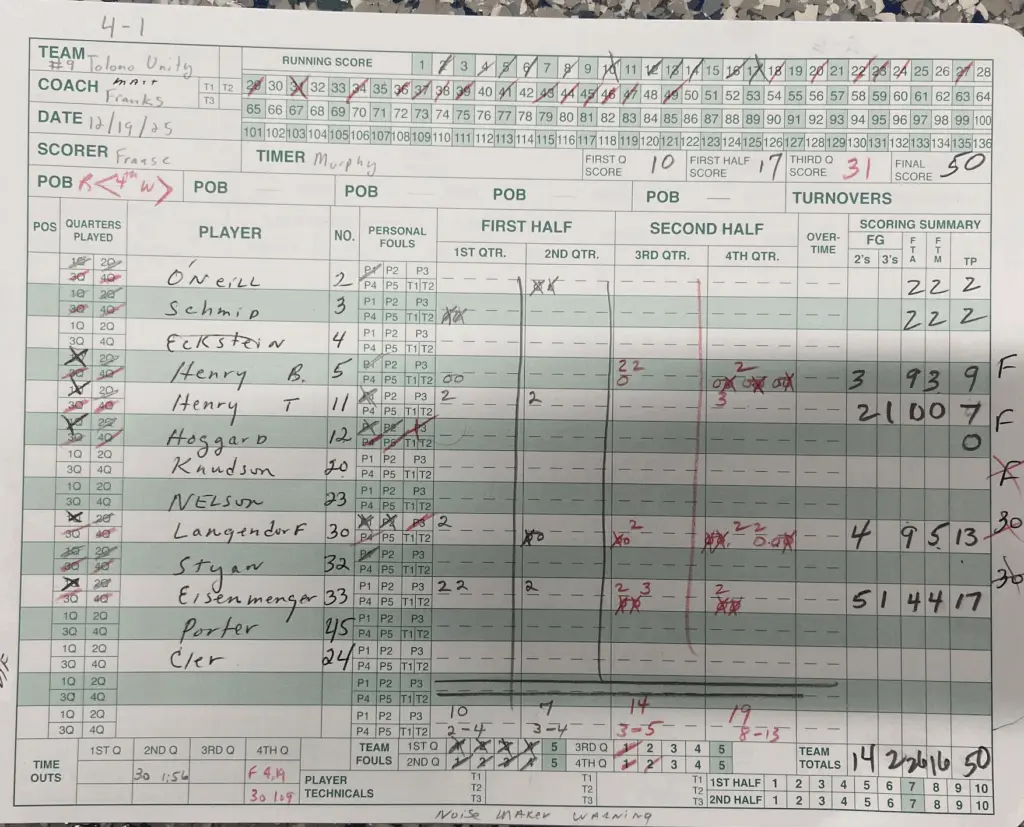 4-1
TEAM #9 Tolono Unity
RUNNING SCORE 1 2 3 4 5 6 7 8 9 10 11 12 13 14 15 16 17 18 19 20 21 22 23 24 25 26 27 28
COACH Matt Franks T1 T2 T3
29 30 31 32 33 34 35 36 37 38 39 40 41 42 43 44 45 46 47 48 49 50 51 52 53 54 55 56 57 58 59 60 61 62 63 64
65 66 67 68 69 70 71 72 73 74 75 76 77 78 79 80 81 82 83 84 85 86 87 88 89 90 91 92 93 94 95 96 97 98 99 100
DATE 12/19/25
101 102 103 104 105 106 107 108 109 110 111 112 113 114 115 116 117 118 119 120 121 122 123 124 125 126 127 128 129 130 131 132 133 134 135 136
SCORER Franse TIMER Murphy FIRST Q SCORE 10 FIRST HALF SCORE 17 THIRD Q SCORE 31 FINAL SCORE 50
POB R <4th W> POB POB POB POB TURNOVERS
POS QUARTERS PLAYED PLAYER NO. PERSONAL FOULS FIRST HALF SECOND HALF OVER-TIME SCORING SUMMARY
1ST QTR. 2ND QTR. 3RD QTR. 4TH QTR. FG 2's 3's FTA FTM TP
1Q 2Q 3Q 4Q O'Neill 2 P1 P2 P3 P4 P5 T1 T2 2 2 2
1Q 2Q 3Q 4Q Schmid 3 P1 P2 P3 P4 P5 T1 T2 2 2 2
1Q 2Q 3Q 4Q Eckstein 4 P1 P2 P3 P4 P5 T1 T2
1Q 2Q 3Q 4Q Henry B. 5 P1 P2 P3 P4 P5 T1 T2 00 2 2 0 2 3 9 3 9 F
1Q 2Q 3Q 4Q Henry T 11 P1 P2 P3 P4 P5 T1 T2 2 2 3 2 1 0 0 7
1Q 2Q 3Q 4Q Hoggard 12 P1 P2 P3 P4 P5 T1 T2 0 F
1Q 2Q 3Q 4Q Knudson 20 P1 P2 P3 P4 P5 T1 T2 F
1Q 2Q 3Q 4Q Nelson 23 P1 P2 P3 P4 P5 T1 T2
1Q 2Q 3Q 4Q Langendorf 30 P1 P2 P3 P4 P5 T1 T2 2 2 2 2 4 9 5 13 30
1Q 2Q 3Q 4Q Styan 32 P1 P2 P3 P4 P5 T1 T2 30
1Q 2Q 3Q 4Q Eisenmenger 33 P1 P2 P3 P4 P5 T1 T2 2 2 2 2 3 2 5 1 4 4 17
1Q 2Q 3Q 4Q Porter 45 P1 P2 P3 P4 P5 T1 T2
1Q 2Q 3Q 4Q Cler 24 P1 P2 P3 P4 P5 T1 T2
1Q 2Q 3Q 4Q P1 P2 P3 P4 P5 T1 T2
1Q 2Q 3Q 4Q P1 P2 P3 P4 P5 T1 T2 10 7 14 19
2-4 3-4 3-5 8-13
TIME OUTS 1ST Q 2ND Q 3RD Q 4TH Q
30 1:56 F 4:19
30 1:09
TEAM FOULS 1ST Q 1 2 3 4 5 3RD Q 1 2 3 4 5
2ND Q 1 2 3 4 5 4TH Q 1 2 3 4 5
TEAM TOTALS 14 2 26 16 50
PLAYER TECHNICALS T1 T2 T3 T1 T2 T3 T1 T2 T3
1ST HALF 1 2 3 4 5 6 7 8 9 10
2ND HALF 1 2 3 4 5 6 7 8 9 10
Noise Maker Warning